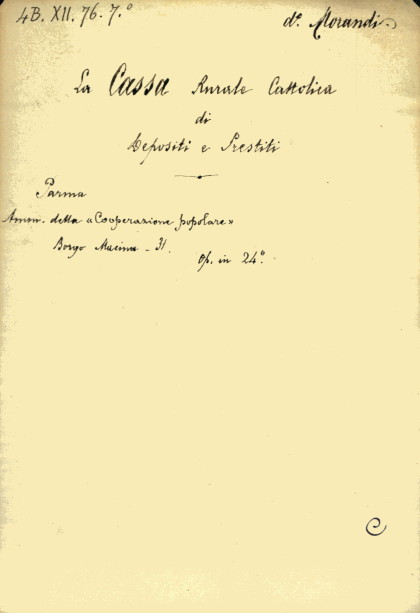 4B. XII. 76. 7.°
d.º Morandi
La Cassa Rurale Cattolica
di
Depositi e Prestiti
Parma
Amm. della «Cooperazione popolare»
Borgo Macina - 31.
Op. in 24°.
C